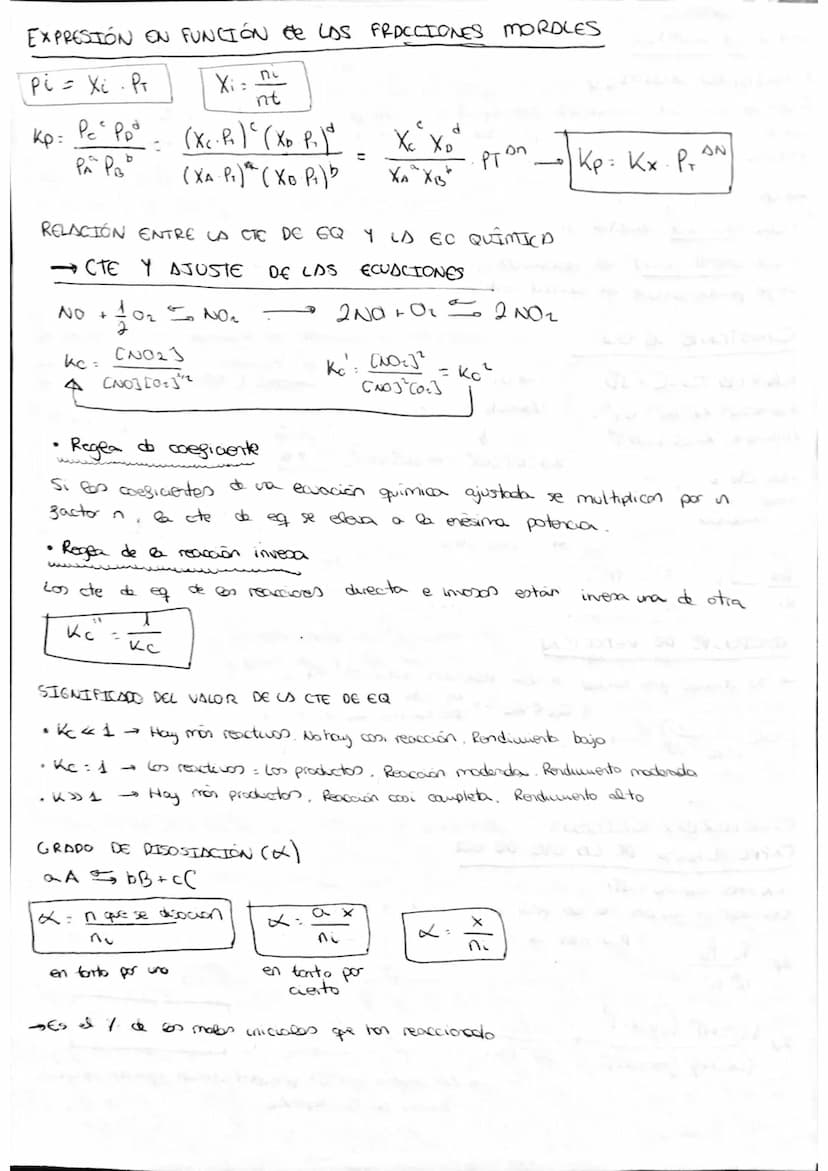 EXPRESIÓN EN FUNCIÓN de LAS FRACCIONES MORALES
Pi = Xi . PT    Xi = ni/nt
Kp = Pc^c PD^d / PA^a PB^b = (Xc.PT)^c (XD PT)^d / (XA.PT)^a (XB.PT)^b = Xc^c XD^d / XA^a XB^b . PT^Δn → Kp = Kx . PT^ΔN
RELACIÓN ENTRE LA CTE DE EQ Y LA EC QUÍMICA
→ CTE Y AJUSTE DE LAS ECUACIONES
NO + 1/2 O2 ⇆ NO2 → 2NO + O2 ⇆ 2NO2
Kc = [NO2] / [NO][O2]^1/2    Kc' = [NO2]^2 / [NO]^2[O2] = Kc^2
• Regla do coeficiente
Si los coeficientes de una ecuación química ajustada se multiplican por un
factor n, la cte de eq se eleva a la enésima potencia.
• Regla de la reacción inversa
Las cte de eq de las reacciones directa e inversas están inversa una de otra
Kc'' = 1/Kc
SIGNIFICADO DEL VALOR DE LA CTE DE EQ
• Kc << 1 → Hay más reactivos. No hay casi reacción. Rendimiento bajo
• Kc = 1 → Los reactivos = Los productos. Reacción moderada. Rendimiento moderado
• K >> 1 → Hay más productos. Reacción casi completa. Rendimiento alto
GRADO DE DISOSIACIÓN (α)
aA ⇆ bB + cC
α = n que se disocian / ni    α = a x / ni    α = x / ni
en tanto por uno    en tanto por
ciento
→ Es el % de los moles iniciales que han reaccionado